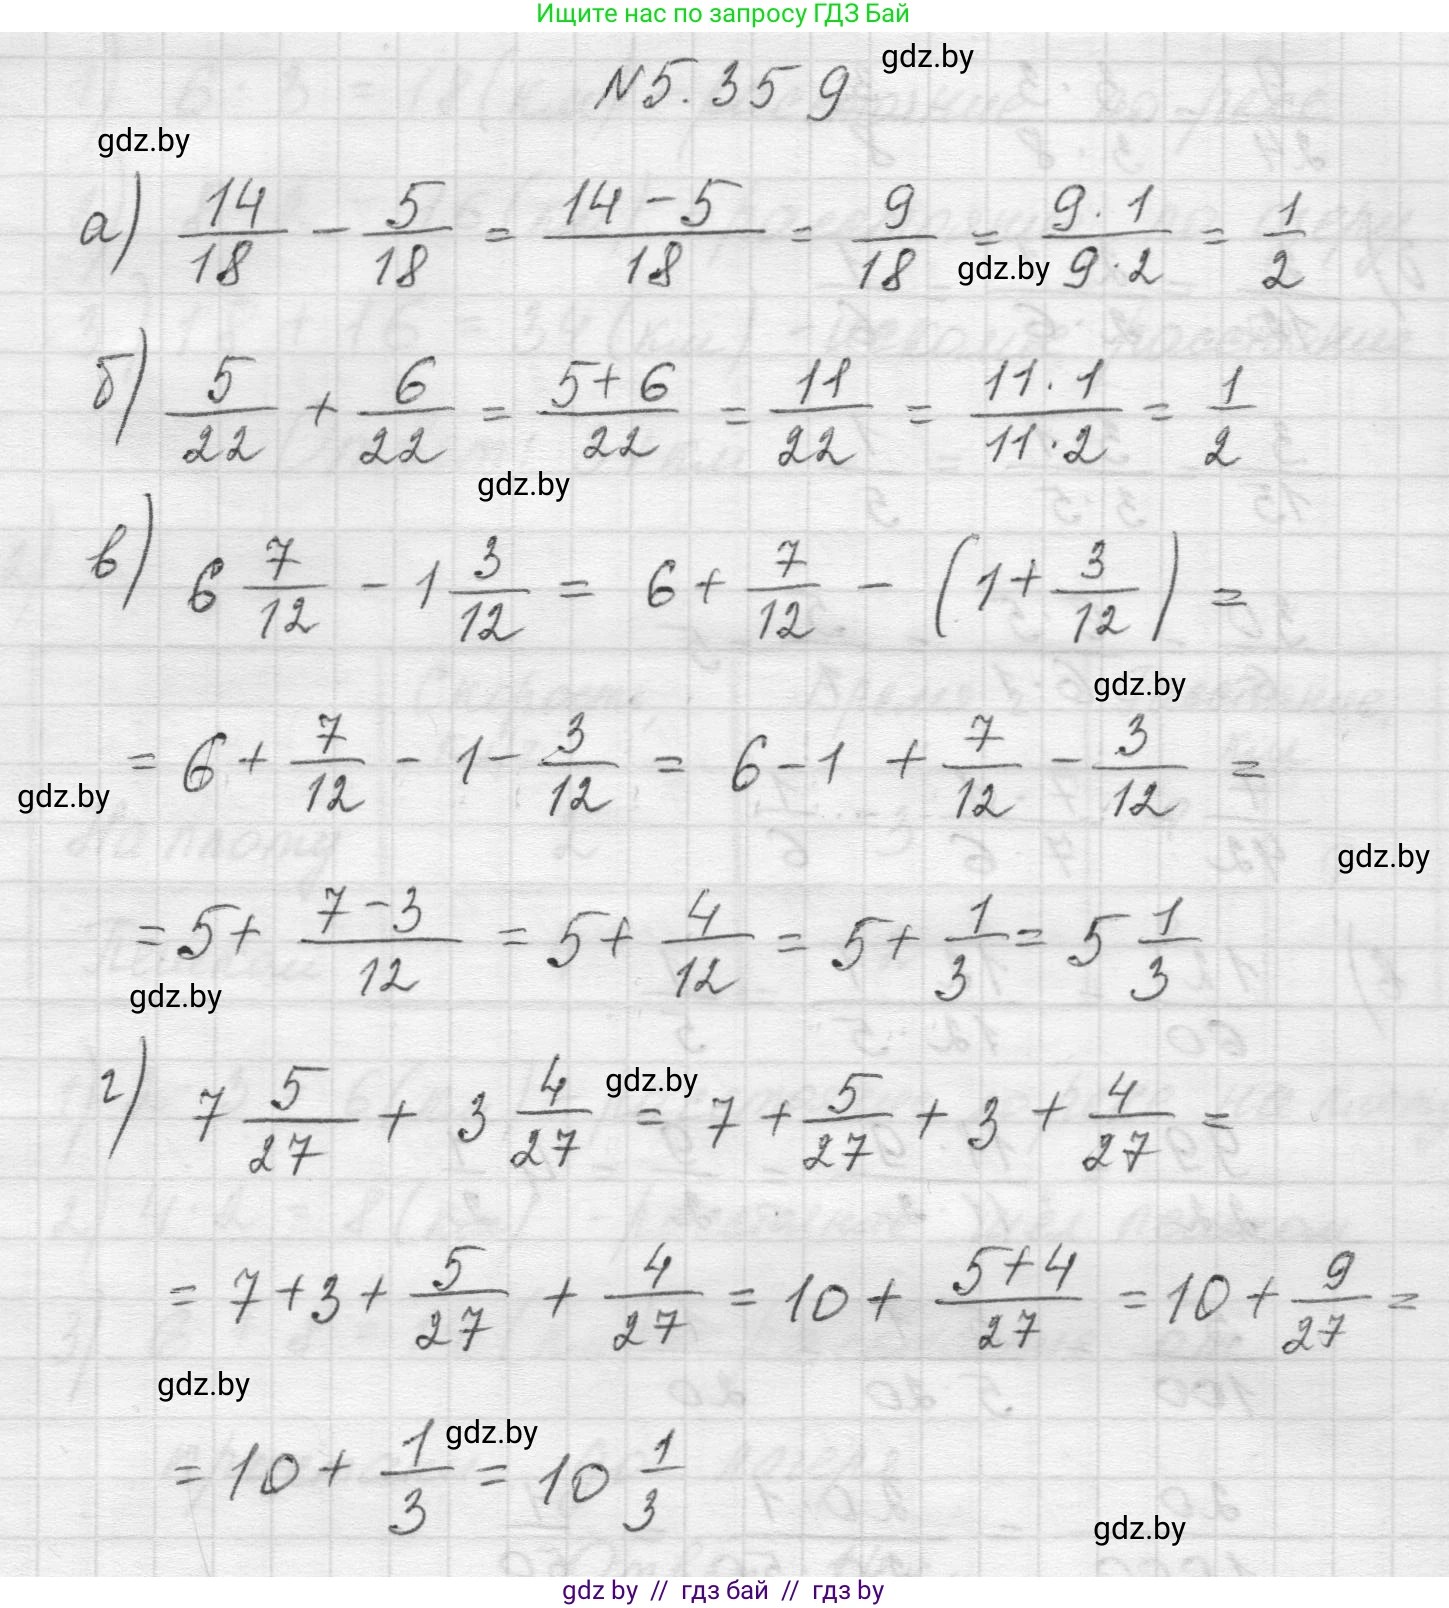 Ищите нас по запросу ГДЗ Бай
gdz.by
№5.359
gdz.by
а) 14/18 - 5/18 = (14-5)/18 = 9/18 = (9·1)/(9·2) = 1/2
gdz.by
б) 5/22 + 6/22 = (5+6)/22 = 11/22 = (11·1)/(11·2) = 1/2
gdz.by
в) 6 7/12 - 1 3/12 = 6 + 7/12 - (1 + 3/12) =
gdz.by
= 6 + 7/12 - 1 - 3/12 = 6 - 1 + 7/12 - 3/12 =
gdz.by
gdz.by
= 5 + (7-3)/12 = 5 + 4/12 = 5 + 1/3 = 5 1/3
gdz.by
г) 7 5/27 + 3 4/27 = 7 + 5/27 + 3 + 4/27 =
gdz.by
= 7 + 3 + 5/27 + 4/27 = 10 + (5+4)/27 = 10 + 9/27 =
gdz.by
gdz.by
= 10 + 1/3 = 10 1/3
gdz.by
gdz by // гдз бай // гдз by